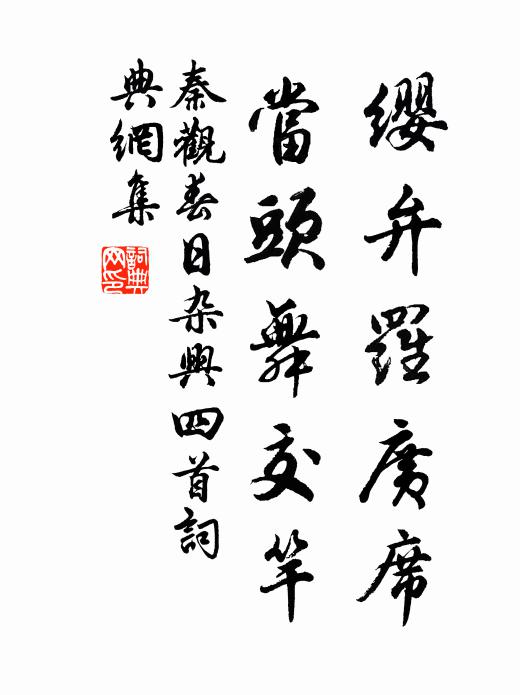 纓弁羅廣席
當頭舞交竿
秦觀春日杂興四首詞
典網集
詞典
网印